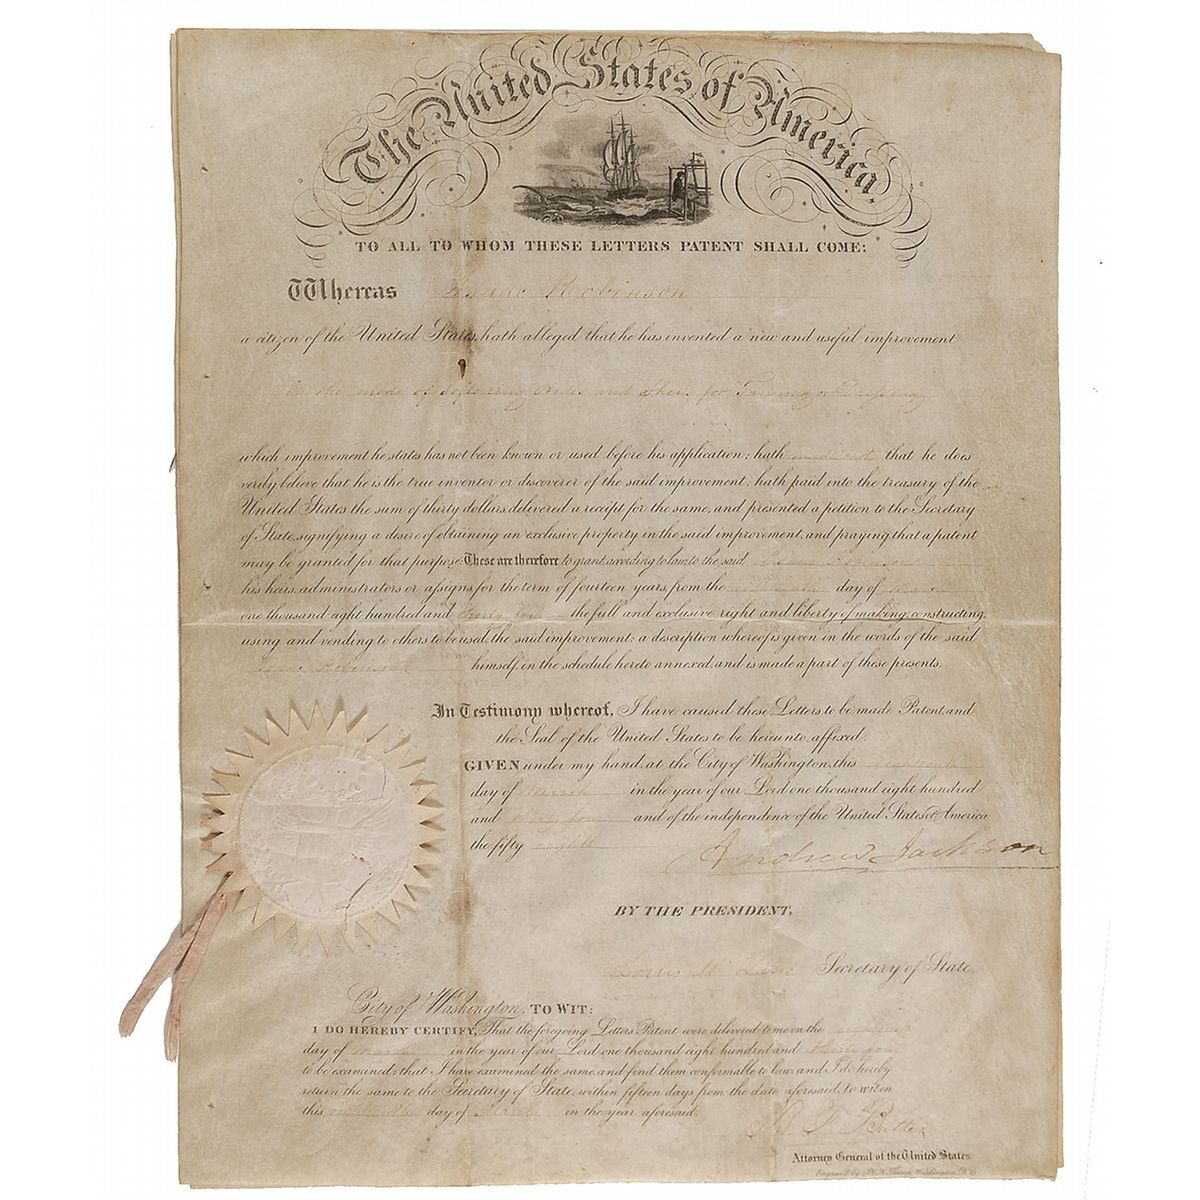 The United States of America
TO ALL TO WHOM THESE LETTERS PATENT SHALL COME:
Whereas Isaac Robinson
a citizen of the United States, hath alleged that he has invented a new and useful improvement
in the mode of Softening Hides and Skins for Tanning or Dressing
which improvement he states has not been known or used before his application; hath made oath that he does
verily believe that he is the true inventor or discoverer of the said improvement; hath paid into the treasury of the
United States the sum of thirty dollars, delivered a receipt for the same, and presented a petition to the Secretary
of State, signifying a desire of obtaining an exclusive property in the said improvement, and praying that a patent
may be granted for that purpose: These are therefore to grant, according to law, to the said Isaac Robinson
his heirs, administrators or assigns, for the term of fourteen years, from the day of March
one thousand eight hundred and thirty four the full and exclusive right and liberty of making, constructing,
using and vending to others to be used, the said improvement; a description whereof is given in the words of the said
Isaac Robinson himself, in the schedule hereto annexed, and is made a part of these presents.
In Testimony whereof, I have caused these Letters to be made Patent, and
the Seal of the United States to be hereunto affixed
GIVEN under my hand, at the City of Washington, this
day of March in the year of our Lord one thousand eight hundred
and thirty four and of the independence of the United States of America
the fifty eighth
Andrew Jackson
BY THE PRESIDENT,
Louis M Lane Secretary of State.
City of Washington, TO WIT:
I DO HEREBY CERTIFY, That the foregoing Letters Patent were delivered to me on the
day of March in the year of our Lord one thousand eight hundred and thirty four
to be examined; that I have examined the same, and find them conformable to law; and I do hereby
return the same to the Secretary of State, within fifteen days from the date aforesaid, to wit: on
this day of March in the year aforesaid.
B F Butler
Attorney General of the United States.